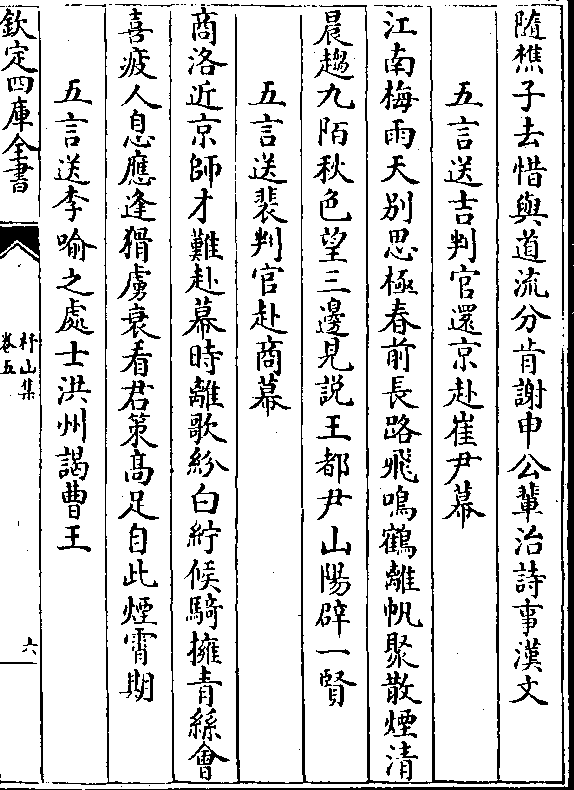 隨樵子去惜與道流分肯謝申公輩治詩事漢文
五言送吉判官還京赴崔尹幕
江南梅雨天别思極春前長路飛鳴鶴離帆聚散煙清
晨趨九陌秋色望三邊見説王都尹山陽辟一賢
五言送裴判官赴商幕
商洛近京師才難赴幕時離歌紛白紵候騎擁青絲會
喜疲人息應逢猾虜衰看君策高足自此煙霄期
五言送李喻之處士洪州謁曹王
欽定四庫全書
杼山集
卷五
六